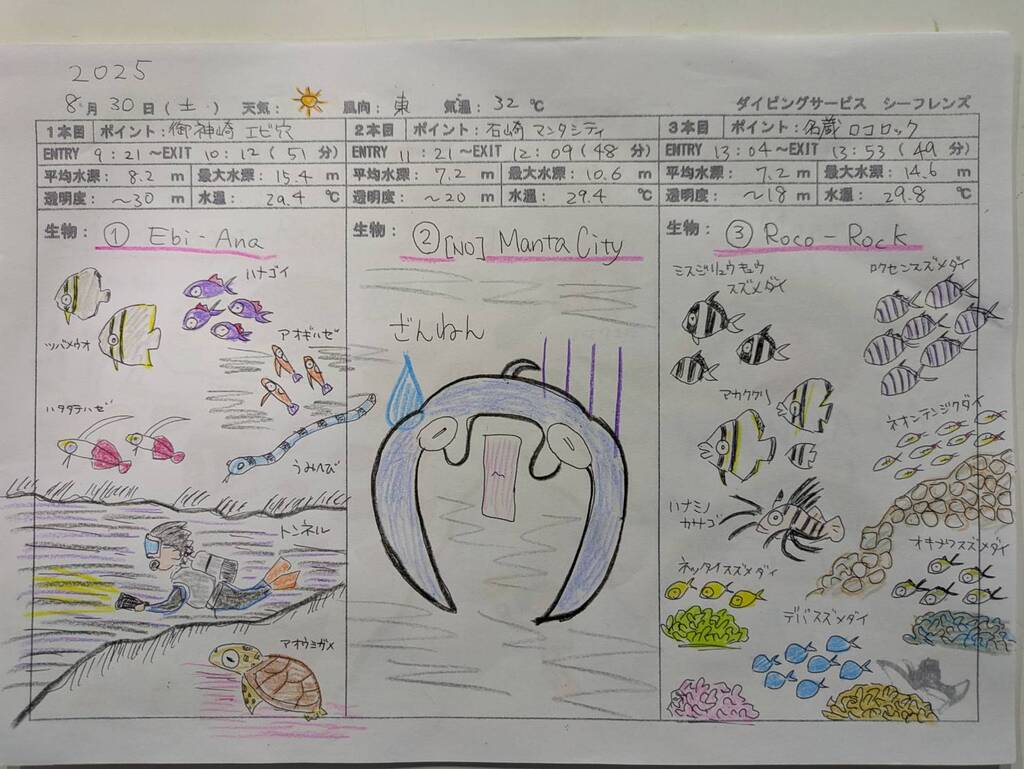 2025
8月 30日(土) 天気: 風向: 東 気温: 32℃ ダイビングサービス シーフレンズ
1本目 ポイント:御神崎 エビ穴
ENTRY 9:21~EXIT 10:12(51分)
平均水深: 8.2 m 最大水深: 15.4 m
透明度: ~30 m 水温: 29.4 ℃
生物: ① Ebi-Ana
ハナゴイ
アオギハゼ
ツバメウオ
ハタタテハゼ
うみへび
トンネル
アオウミガメ
2本目 ポイント:石崎 マンタシティ
ENTRY 11:21~EXIT 12:09(48分)
平均水深: 7.2 m 最大水深: 10.6 m
透明度: ~20 m 水温: 29.4 ℃
生物: ② [NO] Manta City
ざんねん
3本目 ポイント:名蔵 ロコロック
ENTRY 13:04~EXIT 13:53(49分)
平均水深: 7.2 m 最大水深: 14.6 m
透明度: ~18 m 水温: 29.8 ℃
生物: ③ Roco-Rock
ミスジリュウキュウ
スズメダイ
ロクセンスズメダイ
アカククリ
ネオンテンジクダイ
ハナミノ
カサゴ
オキナワスズメダイ
ネッタイスズメダイ
デバスズメダイ